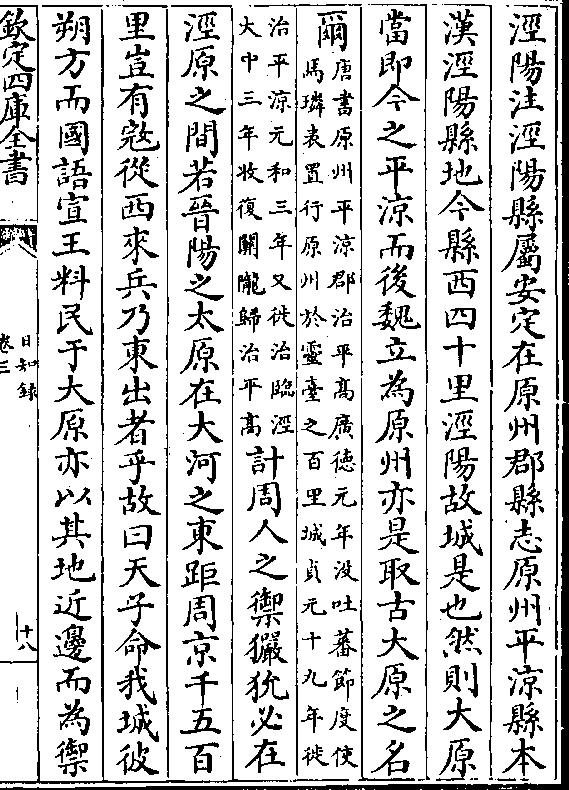 涇陽注涇陽縣屬安定在原州郡縣志原州平涼縣本
漢涇陽縣地今縣西四十里涇陽故城是也然則大原
當即今之平涼而後魏立為原州亦是取古大原之名
爾唐書原州平涼郡治平高廣德元年没吐蕃節度使
馬璘表置行原州於靈臺之百里城貞元十九年徙
治平涼元和三年又徙治臨涇
大中三年收復關隴歸治平高計周人之禦玁狁必在
涇原之間若晉陽之太原在大河之東距周京千五百
里豈有寇從西來兵乃東出者乎故曰天子命我城彼
朔方而國語宣王料民于大原亦以其地近邊而為禦
欽定四庫全書
日知錄
卷三
十八